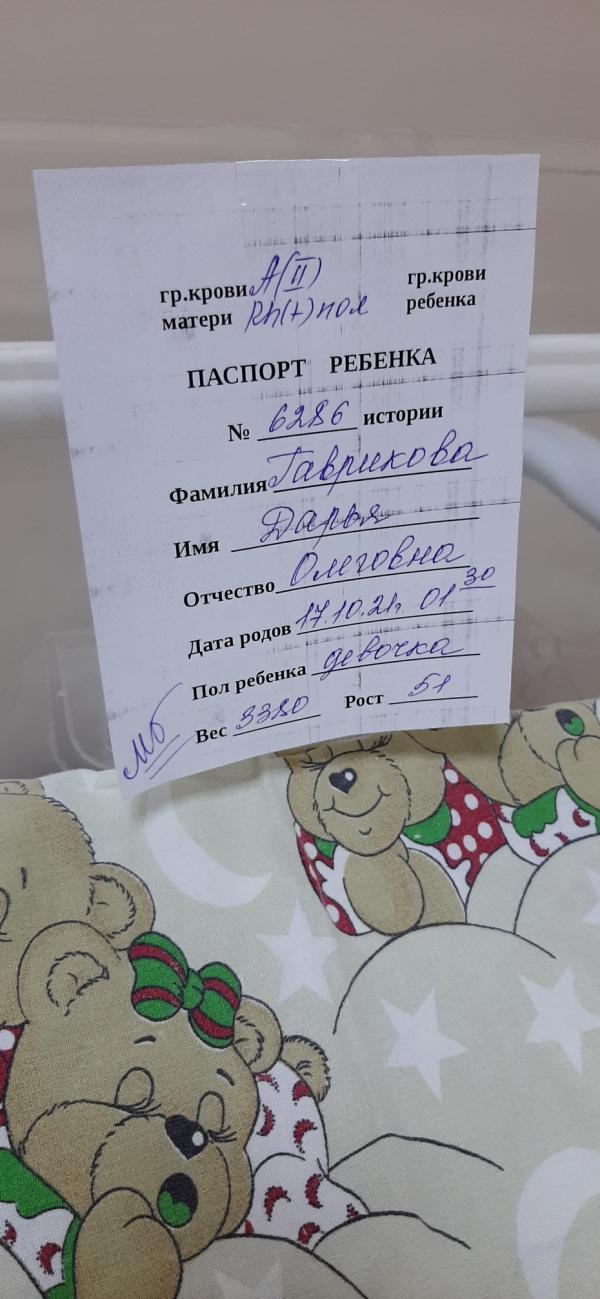 гр.крови A(II) гр.крови
матери Rh(+) пол ребенка
ПАСПОРТ РЕБЕНКА
№ 6286 истории
Фамилия Гаврикова
Имя Дарья
Отчество Олеговна
Дата родов 17.10.21г. 01 30
Пол ребенка девочка
Вес 3380 Рост 51
МБ